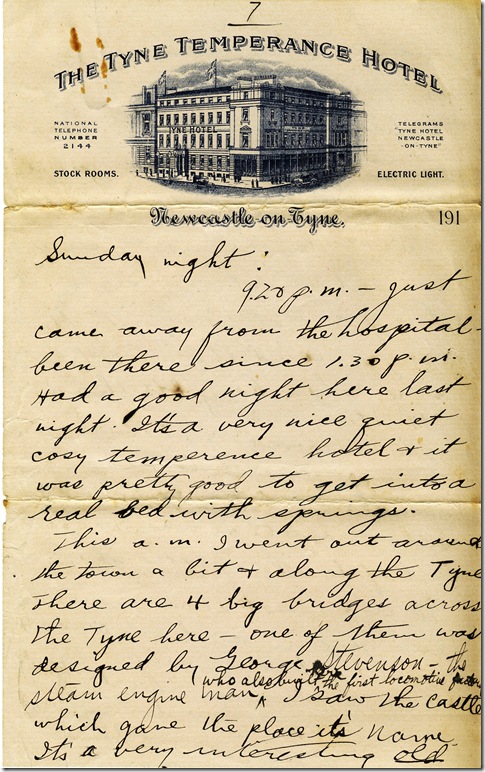 7
THE TYNE TEMPERANCE HOTEL
NATIONAL
TELEPHONE
NUMBER
2144
TYNE HOTEL
TELEGRAMS
"TYNE HOTEL
NEWCASTLE
-ON-TYNE"
STOCK ROOMS.
ELECTRIC LIGHT.
Newcastle-on-Tyne.
191
Sunday night:
9.20 p.m. – just
came away from the hospital –
been there since 1.30 p.m.
Had a good night here last
night. It's a very nice quiet
cosy temperence hotel & it
was pretty good to get into a
real bed with springs.
This a.m. I went out around
the town a bit & along the Tyne
There are 4 big bridges across
the Tyne here – one of them was
designed by George Stevenson – the
who also built the first locomotive
steam engine man. I saw the castle
which gave the place it's name
It's a very interesting old